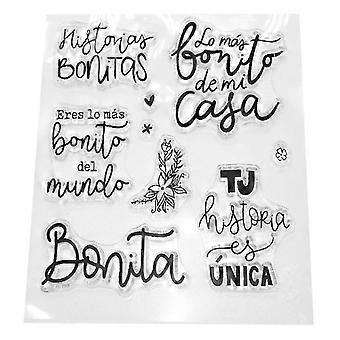 Historias
BONITAS
Lo más
bonito
de mi
casa
Eres lo más
bonito
del
mundo
TU
historia
es
ÚNICA
Bonita